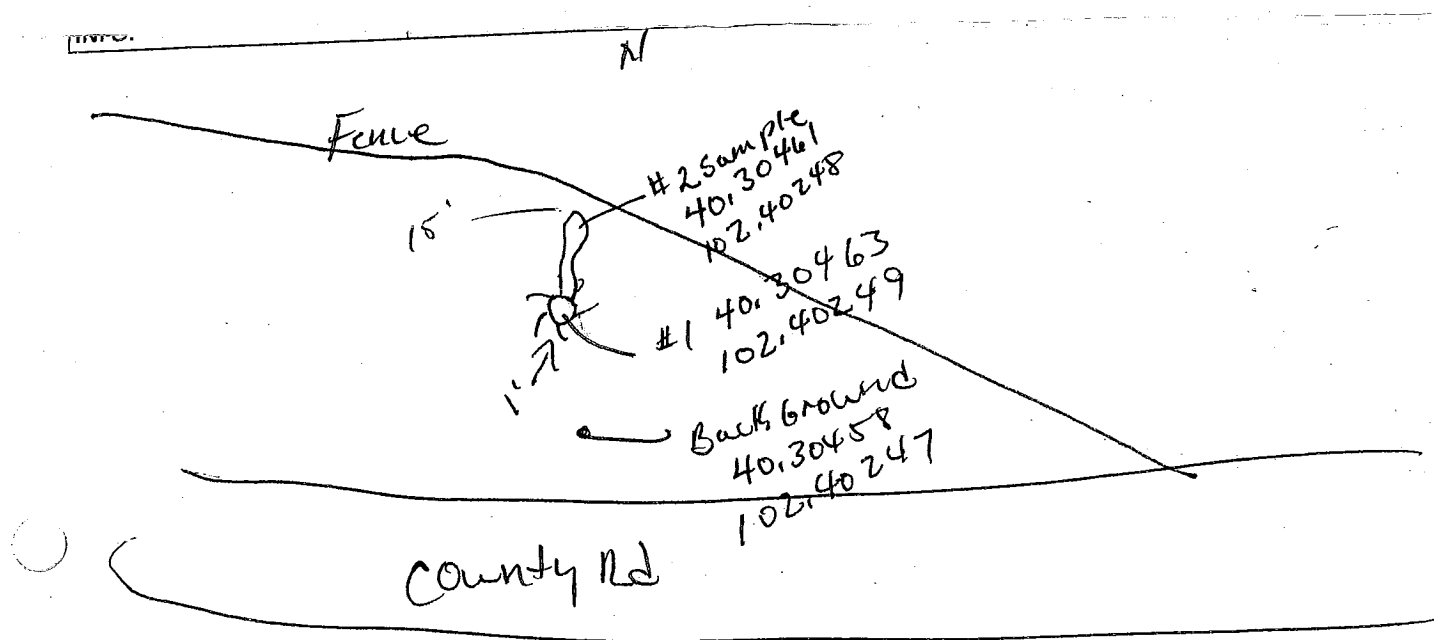 N
Fence
#2 sample
40.30461
102.40248
15'
#1 40.30463
102.40249
1'
BackGround
40.30458
102.40247
County Rd